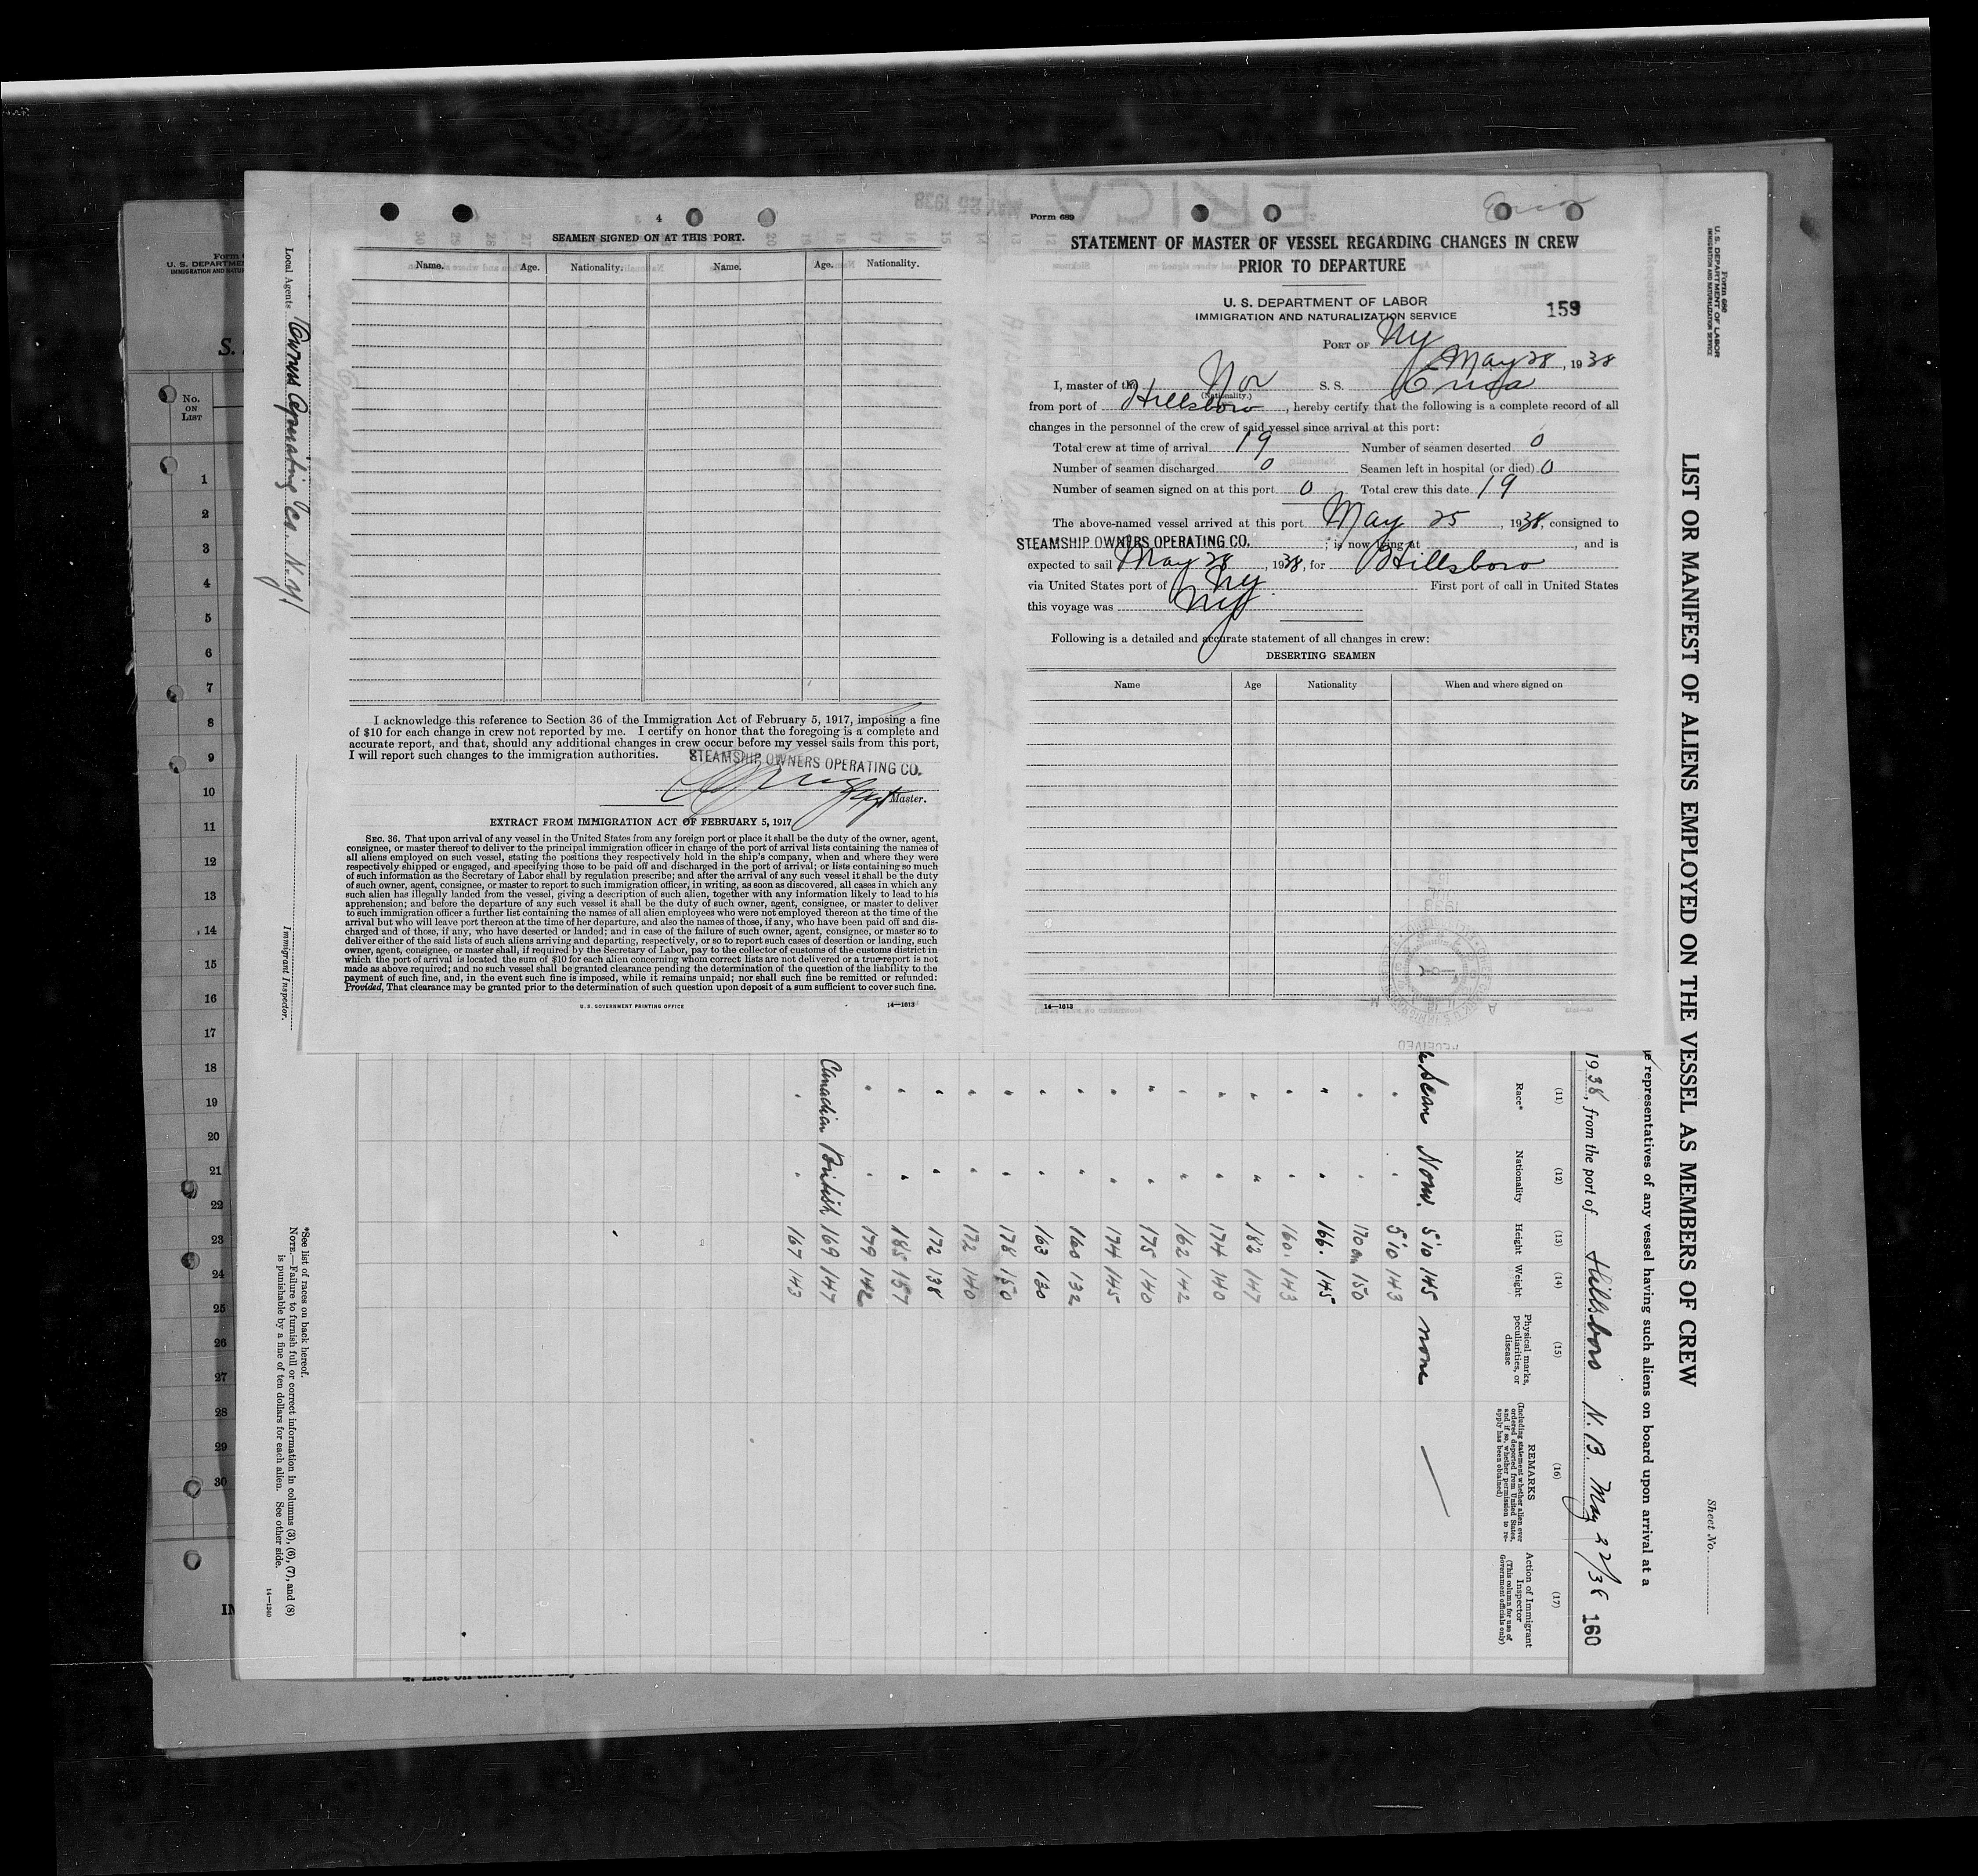 4
SEAMEN SIGNED ON AT THIS PORT.
Name. Age. Nationality. Name. Age. Nationality.
I acknowledge this reference to Section 36 of the Immigration Act of February 5, 1917, imposing a fine
of $10 for each change in crew not reported by me. I certify on honor that the foregoing is a complete and
accurate report, and that, should any additional changes in crew occur before my vessel sails from this port,
I will report such changes to the immigration authorities.
STEAMSHIP OWNERS OPERATING CO.
Master.
EXTRACT FROM IMMIGRATION ACT OF FEBRUARY 5, 1917
SEC. 36. That upon arrival of any vessel in the United States from any foreign port or place it shall be the duty of the owner, agent,
consignee, or master thereof to deliver to the principal immigration officer in charge of the port of arrival lists containing the names of
all aliens employed on such vessel, stating the positions they respectively hold in the ship's company, when and where they were
respectively shipped or engaged, and specifying those to be paid off and discharged in the port of arrival; or lists containing so much
of such information as the Secretary of Labor shall by regulation prescribe; and after the arrival of any such vessel it shall be the duty
of such owner, agent, consignee, or master to report to such immigration officer, in writing, as soon as discovered, all cases in which any
such alien has illegally landed from the vessel, giving a description of such alien, together with any information likely to lead to his
apprehension; and before the departure of any such vessel it shall be the duty of such owner, agent, consignee, or master to deliver
to such immigration officer a further list containing the names of all alien employees who were not employed thereon at the time of the
arrival but who will leave port thereon at the time of her departure, and also the names of those, if any, who have been paid off and dis-
charged and of those, if any, who have deserted or landed; and in case of the failure of such owner, agent, consignee, or master so to
deliver either of the said lists of such aliens arriving and departing, respectively, or so to report such cases of desertion or landing, such
owner, agent, consignee, or master shall, if required by the Secretary of Labor, pay to the collector of customs of the customs district in
which the port of arrival is located the sum of $10 for each alien concerning whom correct lists are not delivered or a true report is not
made as above required; and no such vessel shall be granted clearance pending the determination of the question of the liability to the
payment of such fine, and, in the event such fine is imposed, while it remains unpaid; nor shall such fine be remitted or refunded:
Provided, That clearance may be granted prior to the determination of such question upon deposit of a sum sufficient to cover such fine.
U. S. GOVERNMENT PRINTING OFFICE 14—1613
Form 689
Erica
STATEMENT OF MASTER OF VESSEL REGARDING CHANGES IN CREW
PRIOR TO DEPARTURE
U. S. DEPARTMENT OF LABOR
IMMIGRATION AND NATURALIZATION SERVICE
159
PORT OF Ny
May 28, 1938
I, master of the Nor S. S. Erica
(Nationality.)
from port of Hillsboro, hereby certify that the following is a complete record of all
changes in the personnel of the crew of said vessel since arrival at this port:
Total crew at time of arrival 19 Number of seamen deserted 0
Number of seamen discharged 0 Seamen left in hospital (or died) 0
Number of seamen signed on at this port 0 Total crew this date 19
The above-named vessel arrived at this port May 25, 1938, consigned to
STEAMSHIP OWNERS OPERATING CO. ; is now lying at , and is
expected to sail May 28, 1938, for Hillsboro
via United States port of Ny First port of call in United States
this voyage was Ny
Following is a detailed and accurate statement of all changes in crew:
DESERTING SEAMEN
Name Age Nationality When and where signed on
14—1613
Form 686
U. S. DEPARTMENT OF LABOR
IMMIGRATION AND NATURALIZATION SERVICE
Sheet No.
LIST OR MANIFEST OF ALIENS EMPLOYED ON THE VESSEL AS MEMBERS OF CREW
representatives of any vessel having such aliens on board upon arrival at a
1938, from the port of Hillsboro N. B. May 22/38 160
(11) (12) (13) (14) (15) (16) (17)
Race* Nationality Height Weight Physical marks, peculiarities, or disease REMARKS (Including statement whether alien ever ordered deported from United States, and if so, whether permission to re-apply has been obtained) Action of Immigrant Inspector (This column for use of Government officials only)
Norw. 5'10 145 none
" " 5'10 143
" " 170 cm 150
" " 166. 145
" " 160. 143
" " 182 147
" " 174 140
" " 162 142
" " 175 140
" " 174 145
" " 160 132
" " 163 130
" " 178 150
" " 172 140
" " 172 138
" " 185 157
" " 179 142
Canadian British 169 147
" " 167 143
*See list of races on back hereof.
NOTE.—Failure to furnish full or correct information in columns (3), (6), (7), and (8)
is punishable by a fine of ten dollars for each alien. See other side.
14—1240
Local Agents Owners Operating Co. N.Y.
Immigrant Inspector.
U. S. DEPARTME
IMMIGRATION AND NATU
S.
No.
ON
LIST
1
2
3
4
5
6
7
8
9
10
11
12
13
14
15
16
17
18
19
20
21
22
23
24
25
26
27
28
29
30